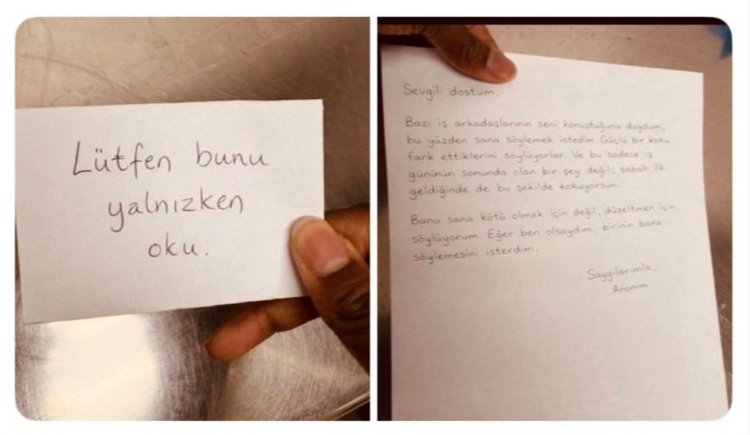 Lütfen bunu
yalnızken
oku.
Sevgili dostum,
Bazı iş arkadaşlarının seni konuştuğunu duydum,
bu yüzden sana söylemek istedim. Güçlü bir koku
fark ettiklerini söylüyorlar. Ve bu sadece iş
gününün sonunda olan bir şey değil; sabah ilk
geldiğinde de bu şekilde kokuyorsun.
Bunu sana kötü olmak için değil, düzeltmen için
söylüyorum. Eğer ben olsaydım, birinin bana
söylemesini isterdim.
Saygılarımla,
Anonim